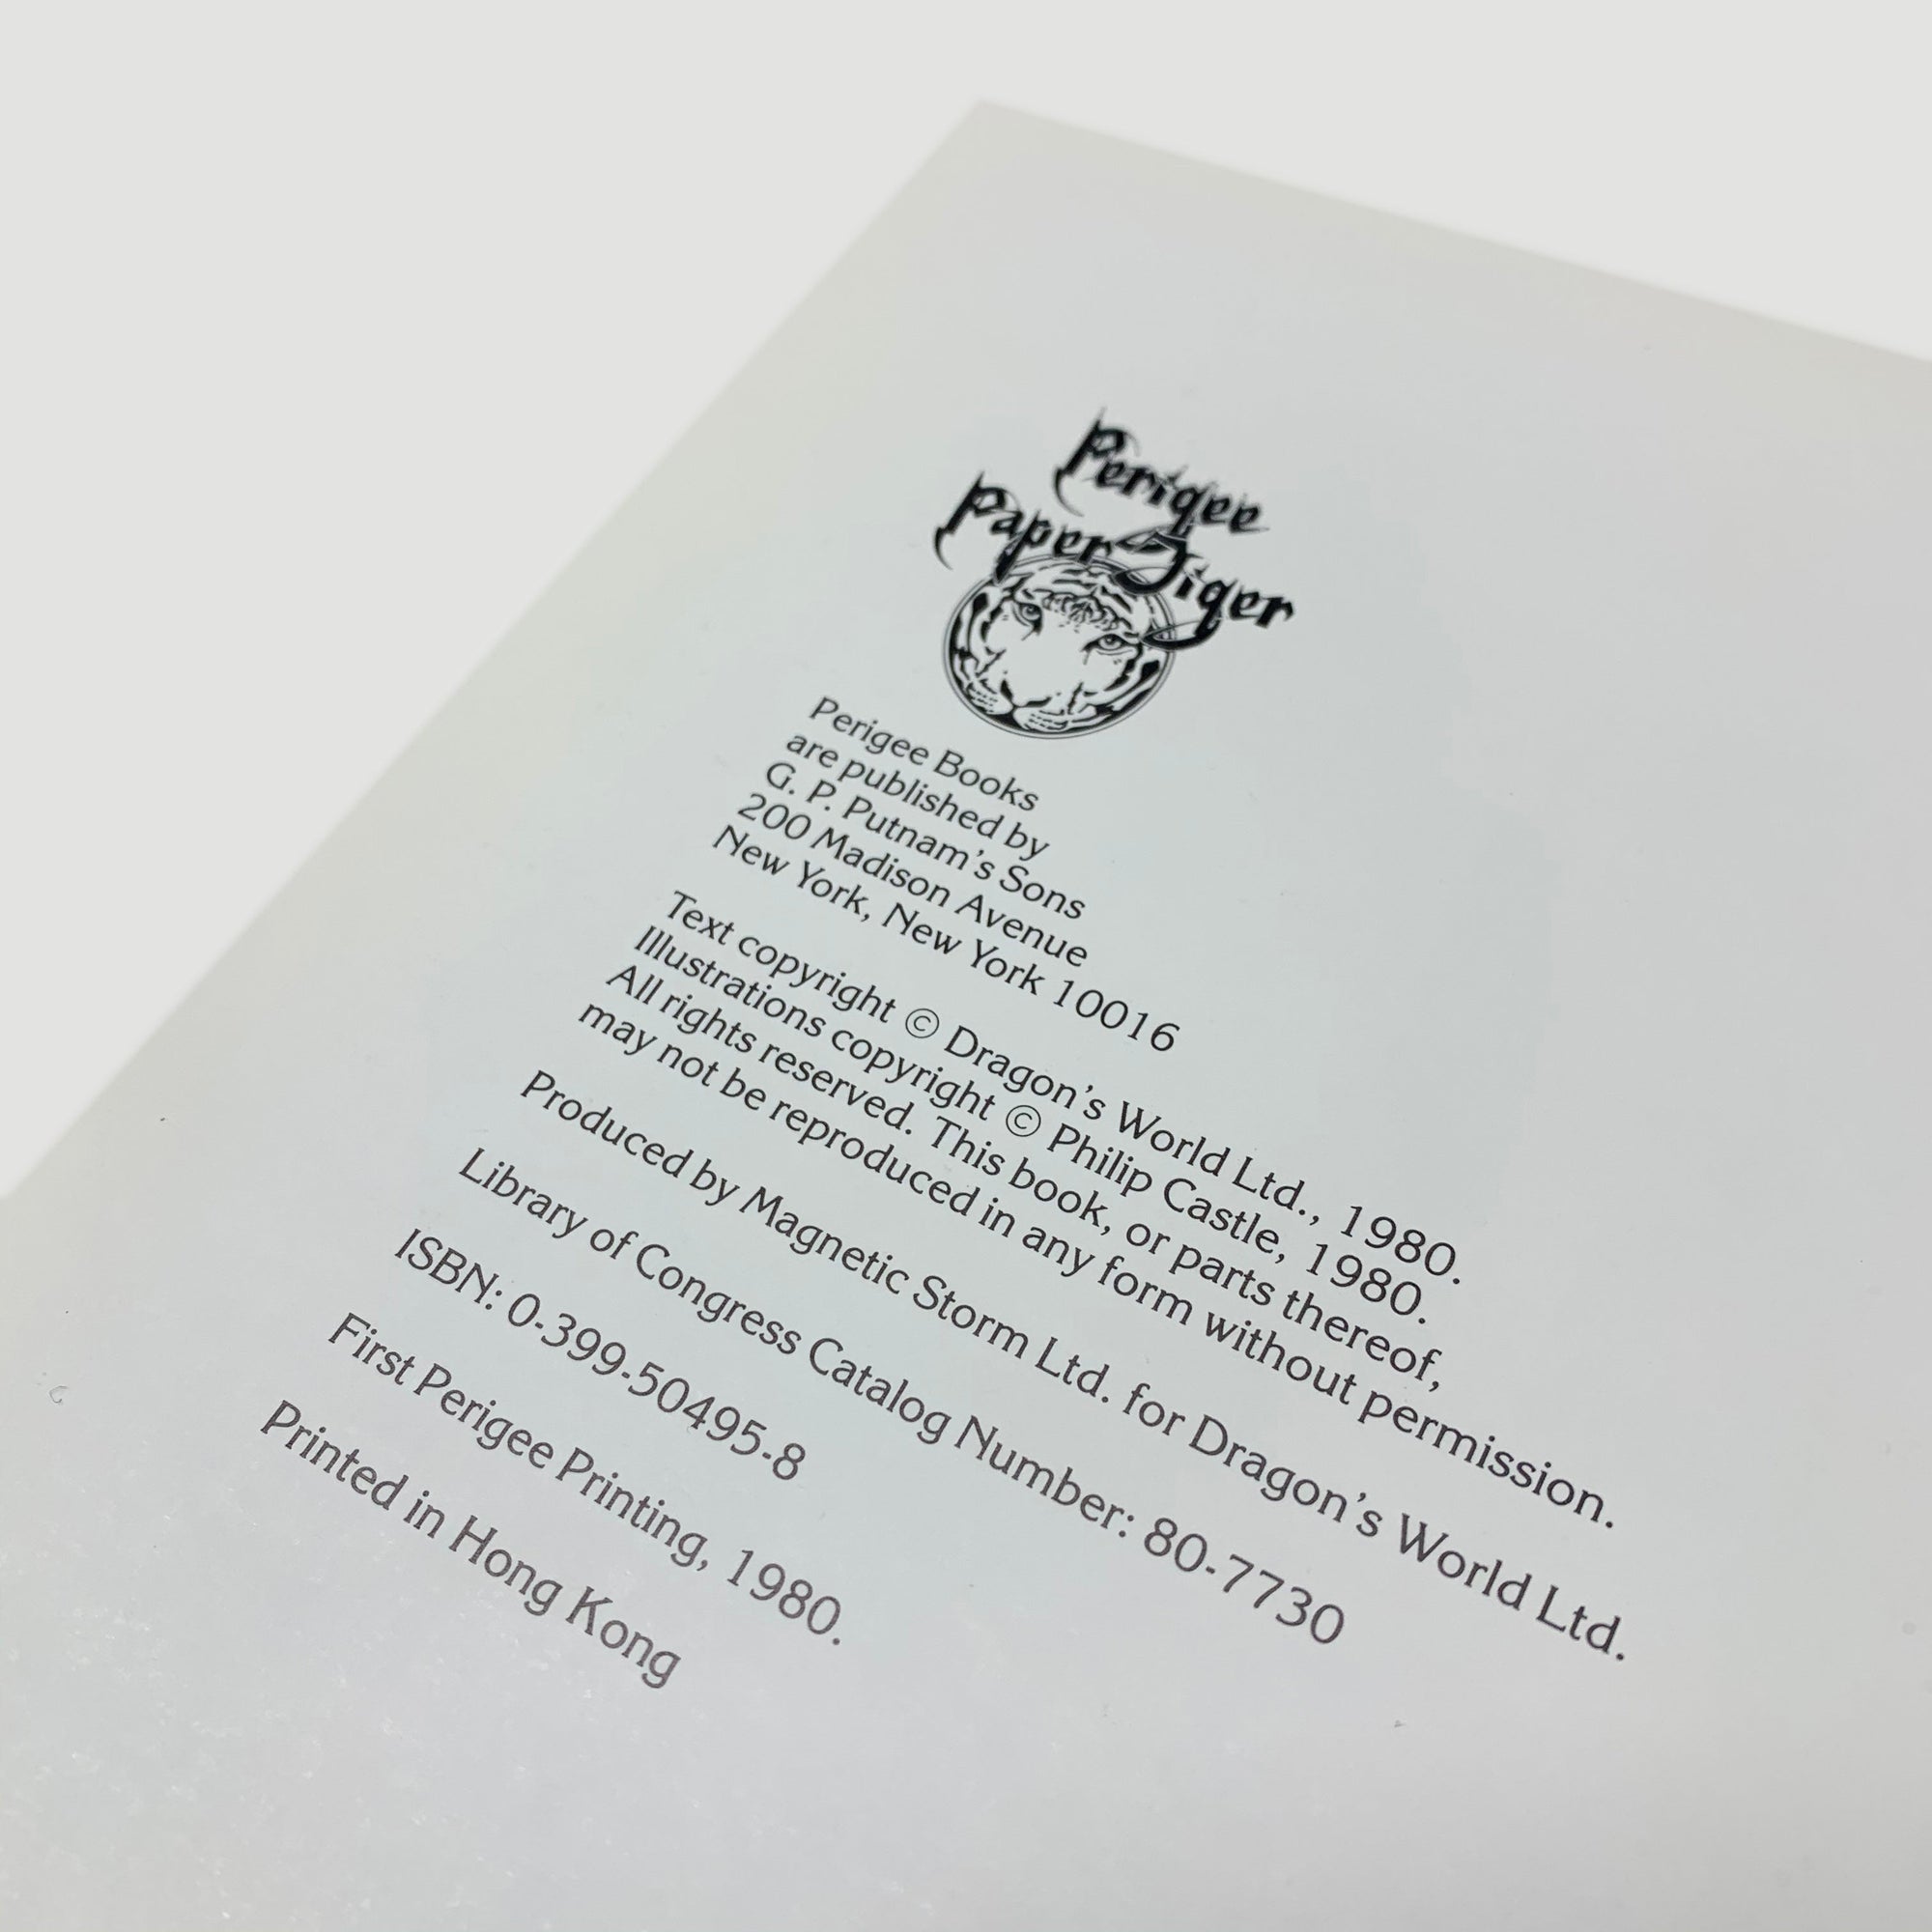 Perigee
Paper Tiger
Perigee Books
are published by
G. P. Putnam's Sons
200 Madison Avenue
New York, New York 10016
Text copyright © Dragon's World Ltd., 1980.
Illustrations copyright © Philip Castle, 1980.
All rights reserved. This book, or parts thereof,
may not be reproduced in any form without permission.
Produced by Magnetic Storm Ltd. for Dragon's World Ltd.
Library of Congress Catalog Number: 80-7730
ISBN: 0-399-50495-8
First Perigee Printing, 1980.
Printed in Hong Kong